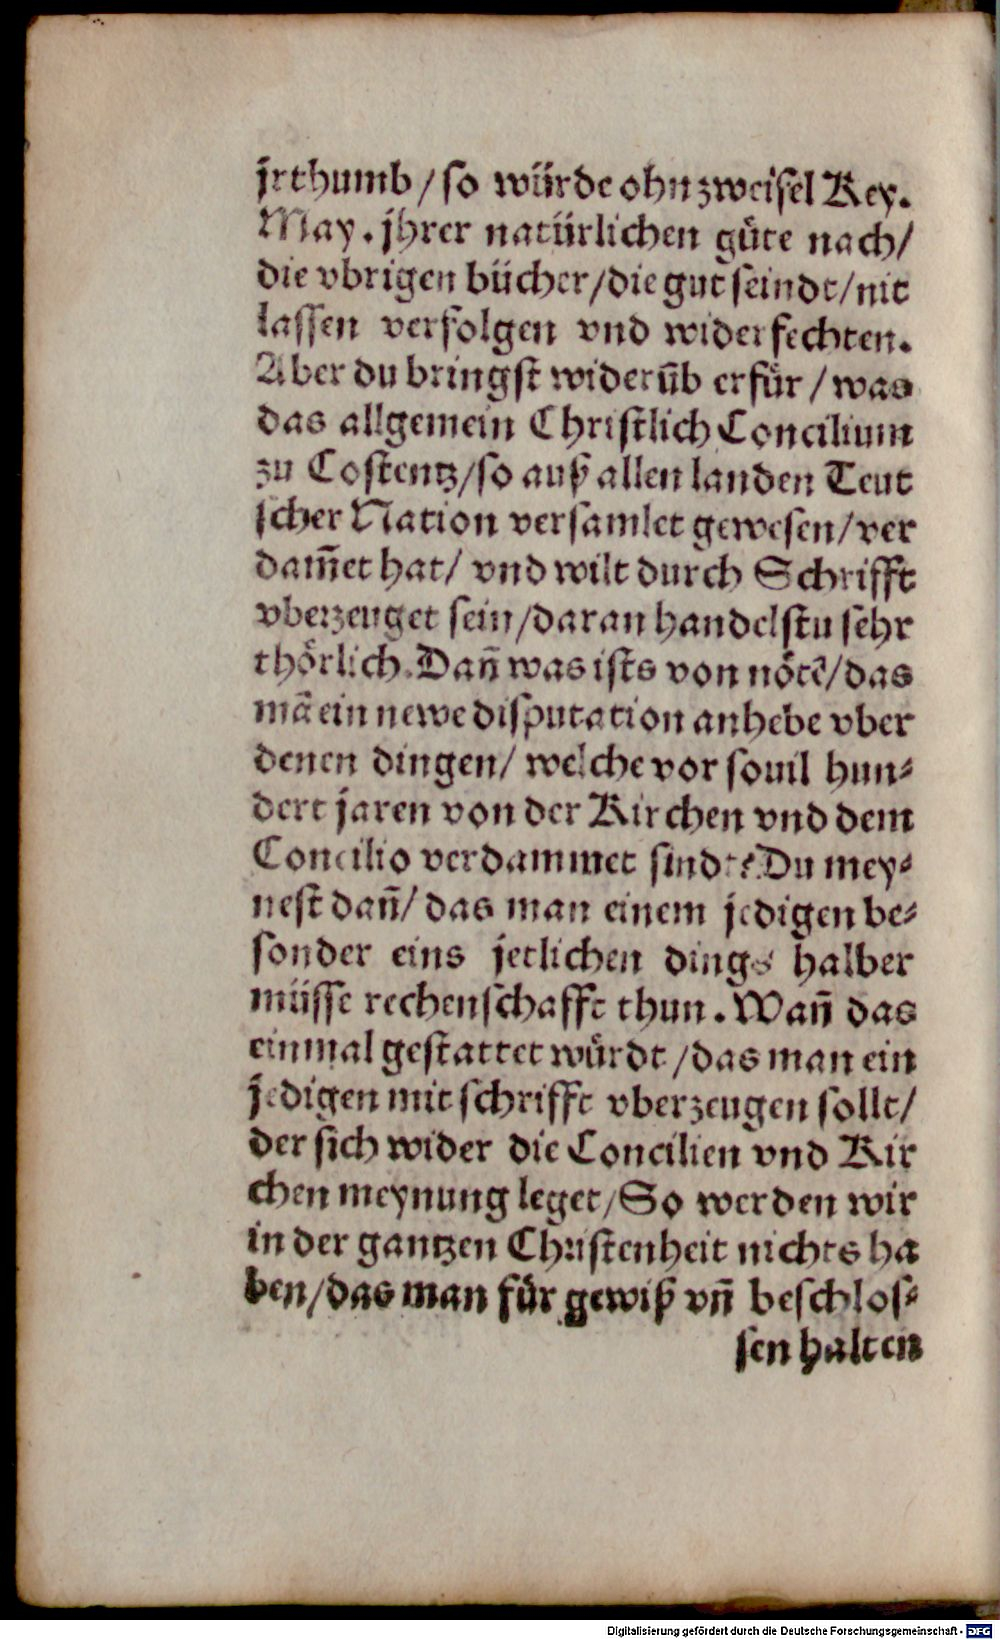 jrthumb / so würde ohn zweifel Key.
May. jhrer natürlichen güte nach /
die vbrigen bücher / die gut seindt / nit
lassen verfolgen vnd widerfechten.
Aber du bringst widerũb erfür / was
das allgemein Christlich Concilium
zu Costentz / so auß allen landen Teut
scher Nation versamlet gewesen / ver
dam̃et hat / vnd wilt durch Schrifft
vberzeuget sein / daran handelstu sehr
thörlich. Dañ was ists von nötẽ / das
mã ein newe disputation anhebe vber
denen dingen / welche vor souil hun-
dert jaren von der Kirchen vnd dem
Concilio verdammet sindt? Du mey-
nest dañ / das man einem jedigen be-
sonder eins jetlichen dings halber
müsse rechenschafft thun. Wañ das
einmal gestattet würdt / das man ein
jedigen mit schrifft vberzeugen sollt /
der sich wider die Concilien vnd Kir
chen meynung leget / So werden wir
in der gantzen Christenheit nichts ha
ben / das man für gewiß vñ beschlos-
sen halten
Digitalisierung gefördert durch die Deutsche Forschungsgemeinschaft - DFG